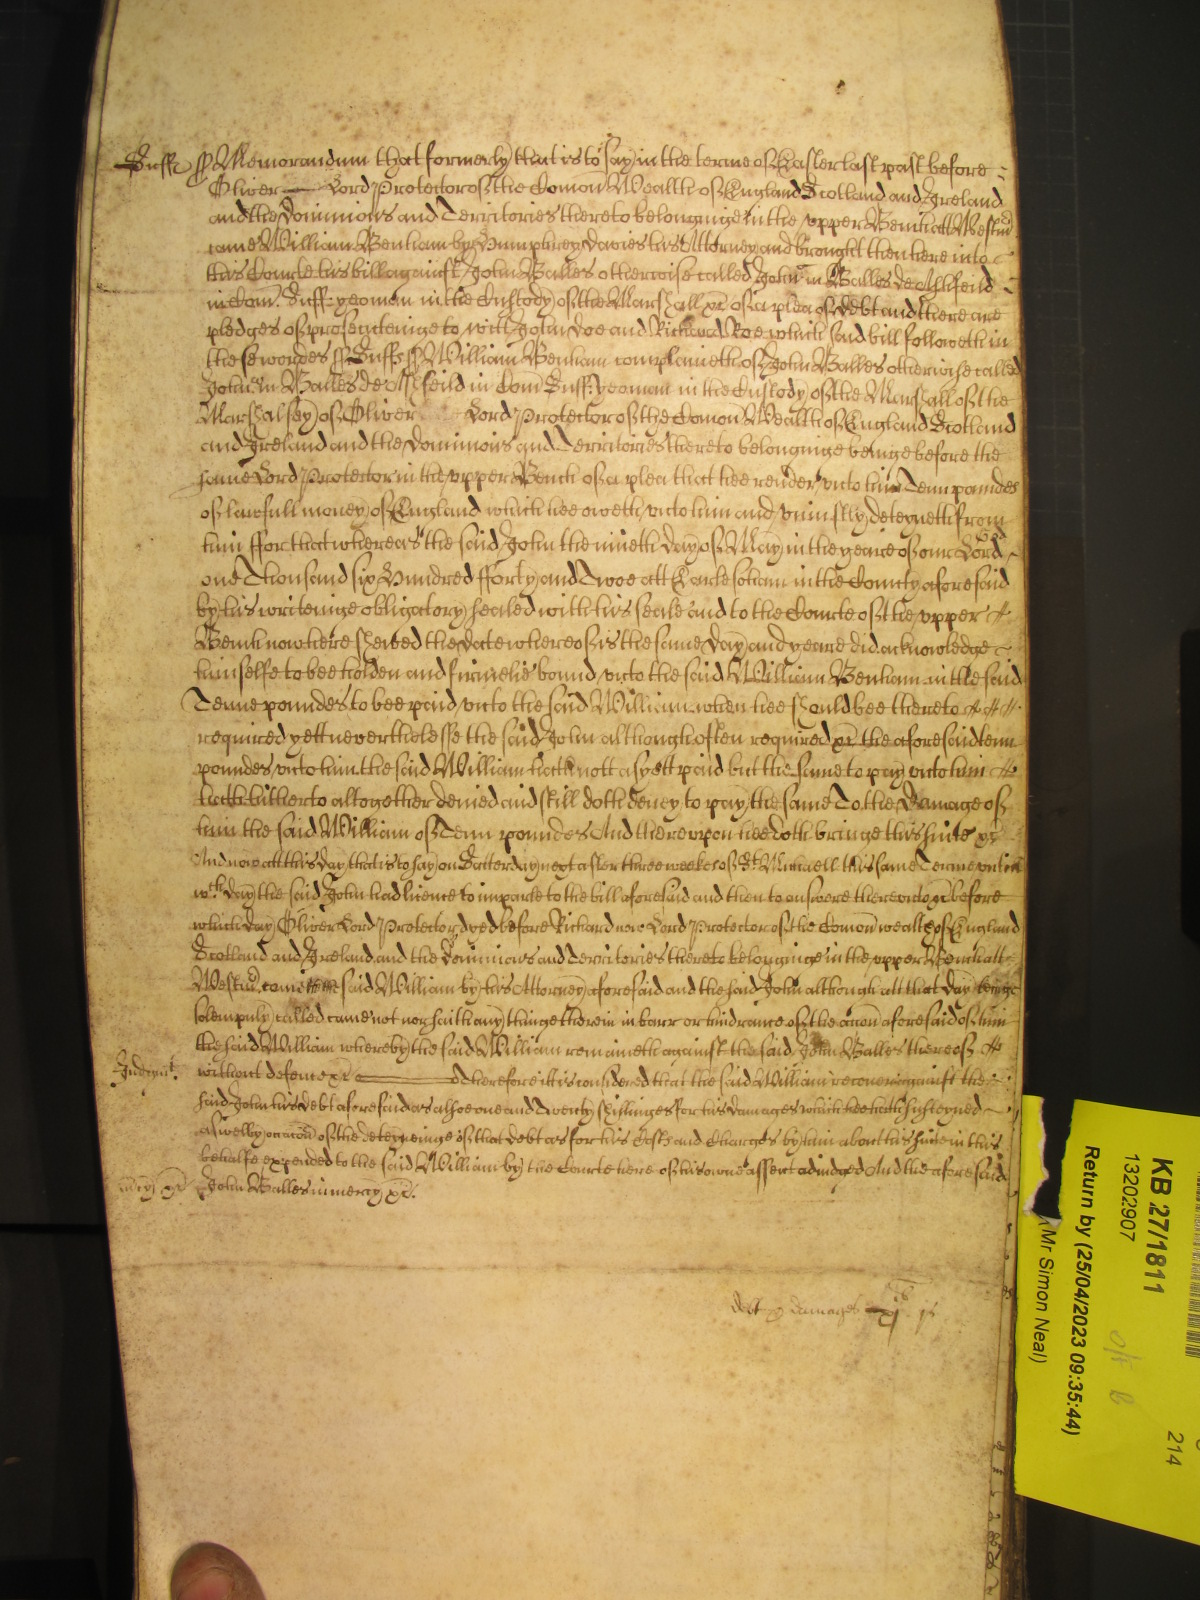 Suff ss Memorandum that formerly that is to say in the terme of Easter last past before
Oliver Lord Protector of the Comon Wealth of England Scotland and Ireland
and the Dominions and Territories thereto belonginge in the upper Bench att Westm
came William Benham by Humphrey Davies his Attorney and brought then here into
this Courte his bill against John Balles otherwise called John Balles de
in Com Suff yeoman in the Custody of the Marshall &c of a plea of debt and there are
pledges of prosecuteinge to witt John Doe and Richard Roe which said bill followeth in
these wordes ss Suff ss William Benham complaineth of John Balles otherwise called
John Balles de in Com Suff yeoman in the Custody of the Marshall of the
Marshalsey of Oliver Lord Protector of the Comon Wealth of England Scotland
and Ireland and the Dominions and Territories thereto belonginge beinge before the
same Lord Protector in the upper Bench of a plea that hee render unto him Tenn poundes
of lawfull money of England which hee oweth unto him and uniustly deteyneth from
him ffor that whereas the said John the nineth day of May in the yeare of our Lord
one Thousand six Hundred fforty and Twoe att Earle soham in the County aforesaid
by his writeinge obligatory sealed with his seale and to the Courte of the upper
Bench now here shewed the date whereof is the same day and yeare did acknowledge
himselfe to bee holden and firmelie bound unto the said William Benham in the said
Tenne poundes to bee paid unto the said William when hee should bee thereto
required yett neverthelesse the said John although often required &c the aforesaid tenn
poundes unto him the said William hath nott as yett paid but the same to pay unto him
hath hitherto altogether denied and still doth deney to pay the same To the Damage of
him the said William of Tenn poundes And thereupon hee doth bringe this suite &c
And now att this day that is to say on Satterday next after three weekes of St Michaell this same Terme untill
wch day the said John had licence to imparle to the bill aforesaid and then to answere thereunto &c before
which day Oliver Lord Protector dyed before Richard now Lord Protector of the Comon wealth of England
Scotland and Ireland and the Dominions and Territories thereto belonginge in the upper Bench att
Westm came the said William by his Attorney aforesaid and the said John although att that day beinge
solempnly called came not nor saith any thinge therein in barr or hindrance of the accon aforesaid of him
the said William whereby the said William remaineth against the said John Balles thereof
Judgmt without defence &c Therefore itt is considered that the said William recover against the
said John his debt aforesaid as alsoe one and Twenty shillinges for his damages which hee hath susteyned
aswell by occacon of the deteyneinge of that debt as for his Costs and Charges by him about his suite in this
behalfe expended to the said William by the Courte here of his owne assent adiudged And the aforesaid
mcy &c John Balles in mercy &c.
debt &c damages xj li js
KB 27/1811
13202907
Return by (25/04/2023 09:35:44)
Mr Simon Neal)
214